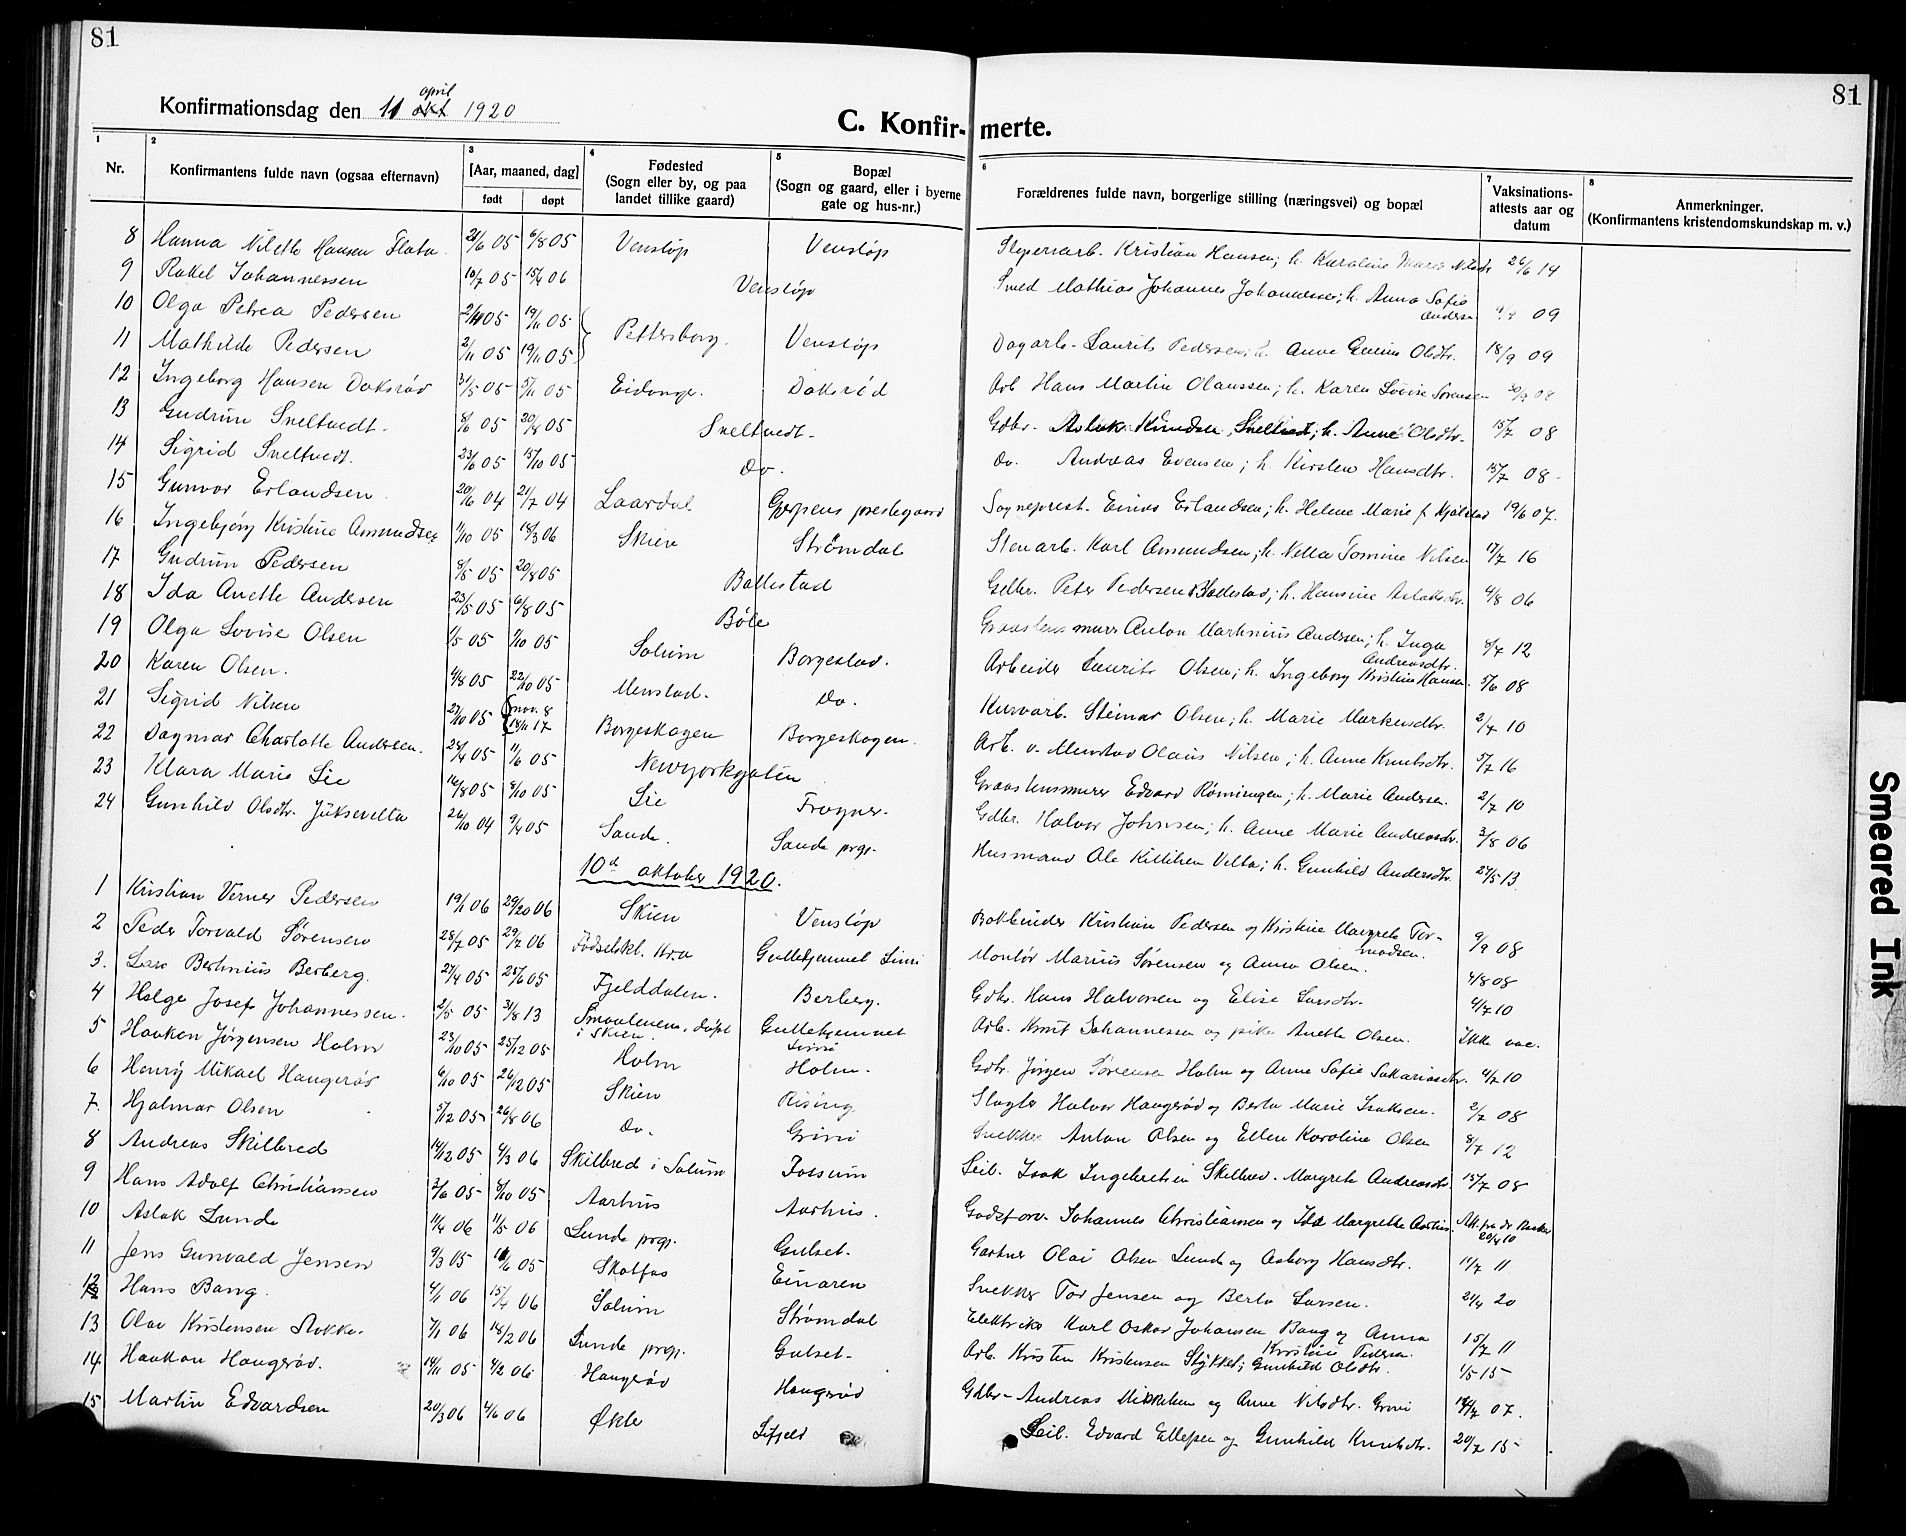 81
81
Konfirmationsdag den 11 april okt 1920
C. Konfir-merte.
1 2 3 4 5 6 7 8
Nr.
Konfirmantens fulde navn (ogsaa efternavn)
[Aar, maaned, dag]
født døpt
Fødested
(Sogn eller by, og paa
landet tillike gaard)
Bopæl
(Sogn og gaard, eller i byerne
gate og hus-nr.)
Forældrenes fulde navn, borgerlige stilling (næringsvei) og bopæl
Vaksinations-
attests aar og
datum
Anmerkninger.
(Konfirmantens kristendomskundskap m. v.)
8 Hanna Nilette Hansen Flata 6/8 05 Venstøp Venstøp Kristian Hansen; h. Karoline Marie 26/6 14
9 Rakel Johannessen 10/7 05 15/4 06 Venstøp Smed Mathias Johannes Johannessen; h. Anna Sofie Anders. 09
10 Olga Petrea Pedersen 2/11 05 19/11 05 Pettersborg. Venstøp
11 Mathilde Pedersen 2/11 05 19/11 05 Dagarb. Laurits Pedersen; h. Anne Olsdtr. 18/9 09
12 Ingeborg Hansen Doksrød 31/5 05 5/11 05 Eidanger. Doksrød Arb Hans Martin Olaussen; h. Karen Lovise Sørensen 30/9 08
13 Gudrun Sneltvedt. 8/6 05 20/8 05 Sneltvedt Gdbr. Aslak Knudsen Sneltvedt; h. Anne Olsdtr. 15/7 08
14 Sigrid Sneltvedt. 23/6 05 15/10 05 Do. Do. Andreas Evensen; h. Kirsten Hansdtr. 15/7 08
15 Gunvor Erlandsen 20/6 04 21/7 04 Laardal Gjerpens prestegaard Sogneprest. Einar Erlandsen; h. Helene Marie f. Kjølstad 19/6 07.
16 Ingebjørg Kristine Amundsen 1/10 05 18/3 06 Skien Strømdal Stenarb. Karl Amundsen; h. Netta Tomine Nilsen 17/7 16
17 Gudrun Pedersen 8/5 05 20/8 05 Ballestad Gdbr. Peter Pedersen Ballestad; h. Hansine Aslaksdtr. 4/8 06
18 Ida Anette Andersen 23/5 05 6/8 05 Bøle Graastensmurer Anton Martinius Andersen; h. Inga Andreasdtr. 12
19 Olga Lovise Olsen 1/5 05 1/10 05 Solum Borgestad. Arbeider Laurits Olsen; h. Ingeborg Kristine Hansen. 5/6 08
20 Karen Olsen. 4/8 05 22/10 05 Menstad. Do. Kurvarb. Steinar Olsen; h. Marie Markusdtr. 2/7 10
21 Sigrid Nilsen 27/10 05 nov. 8 18/11 17 Borgeskogen Borgeskogen. Arb. v. Menstad Olaus Nilsen; h. Anne Knutsdtr. 5/7 16
22 Dagmar Charlotte Andersen. 28/4 05 11/6 05 Newyorkgaten Graastensmurer Edvard Rønningen; h. Marie Andersen. 2/7 10
23 Klara Marie Lie 16/8 05 8/10 05 Lie Frogner. Gdbr. Halvor Johnsen; h. Anne Marie Andreasdtr. 3/8 06
24 Gunhild Olsdtr. Juksevelta 26/10 04 9/4 05 Sande. Sande prgj. Husmand Ole Kittilsen Velta; h. Gunhild Andersdtr. 27/5 13.
10d oktober 1920.
1 Kristian Verner Pedersen 19/1 06 06 Skien Venstøp Bokbinder Kristian Pedersen og Kristine Margrete Tormodsen. 9/9 08
2 Peder Torvald Sørensen 28/7 05 29/7 06 Fødselskl. Kr.a Guttehjemmet Limi Montør Marius Sørensen og Anna Olsen. 4/8 08
3. Lars Berthinius Berberg. 27/4 05 25/6 05 Fjelddalen. Berberg. Gdbr. Hans Halvorsen og Elise Larsdtr. 4/7 10
4 Helge Josef Johannessen. 2/5 05 31/8 13 Smaalenene, døpt i Skien. Guttehjemmet Limi Arb. Knut Johannessen og pike Anette Olsen. Ikke vac.
5 Haakon Jørgensen Holm 23/10 05 25/12 05 Holm Holm. Gdbr. Jørgen Sørensen Holm og Anne Sofie Sakariasdtr. 4/7 10
6 Henry Mikael Haugerød 6/10 05 26/12 05 Skien Rising Slagter Halvor Haugerød og Berta Marie Isaksen. 2/7 08
7. Hjalmar Olsen 5/12 05 26/8 06 Do. Grini Snekker Anton Olsen og Ellen Karoline Olsen 8/7 12
8 Andreas Skilbred 14/12 05 4/3 06 Skilbred i Solum Fossum Seil. Isak Ingebretsen Skilbred. Margrete Andreasdtr. 15/7 08
9 Hans Adolf Christiansen 2/6 05 8/10 05 Aarhus Aarhus. Godsforv. Johannes Christiansen og Ida Margrethe Aarhus. 20/4 10
10 Aslak Lunde 11/4 06 11/5 06 Lunde prgj. Gulset. Gartner Olai Olsen Lund og Asborg Hansdtr. 11/7 11
11 Jens Gunvald Jensen 9/3 05 05 Skotfos Einaren Snekker Tor Jensen og Berta Larsen. 21/4 20
12 Hans Bang. 4/1 06 15/4 06 Solum Strømdal Elektriker Karl Oskar Johansen Bang og Anna Kristine Pedersen. 15/7 11
13 Olav Kristensen Stokke. 7/1 06 18/2 06 Lunde prgj. Gulset. Arb. Kristen Kristensen; Gunhild Olsdtr. 1/5 15
14 Haakon Haugerød. 14/11 05 4/2 06 Haugerød Haugerød Gdbr. Andreas Mikkelsen og Anne Nilsdtr. 07.
15 Martin Edvardsen 20/3 06 4/6 06 Økle Lifjeld Seil. Edvard Ellefsen og Gunhild Knutsdtr. 20/7 15
Smeared Ink